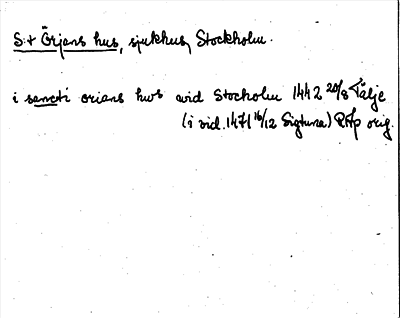 S:t Örjans hus, sjukhus, Stockholm.
i sancti orians hws wid Stocholm 1442 20/8 Tälje
(i vid. 1471 16/12 Sigtuna) RAp orig.